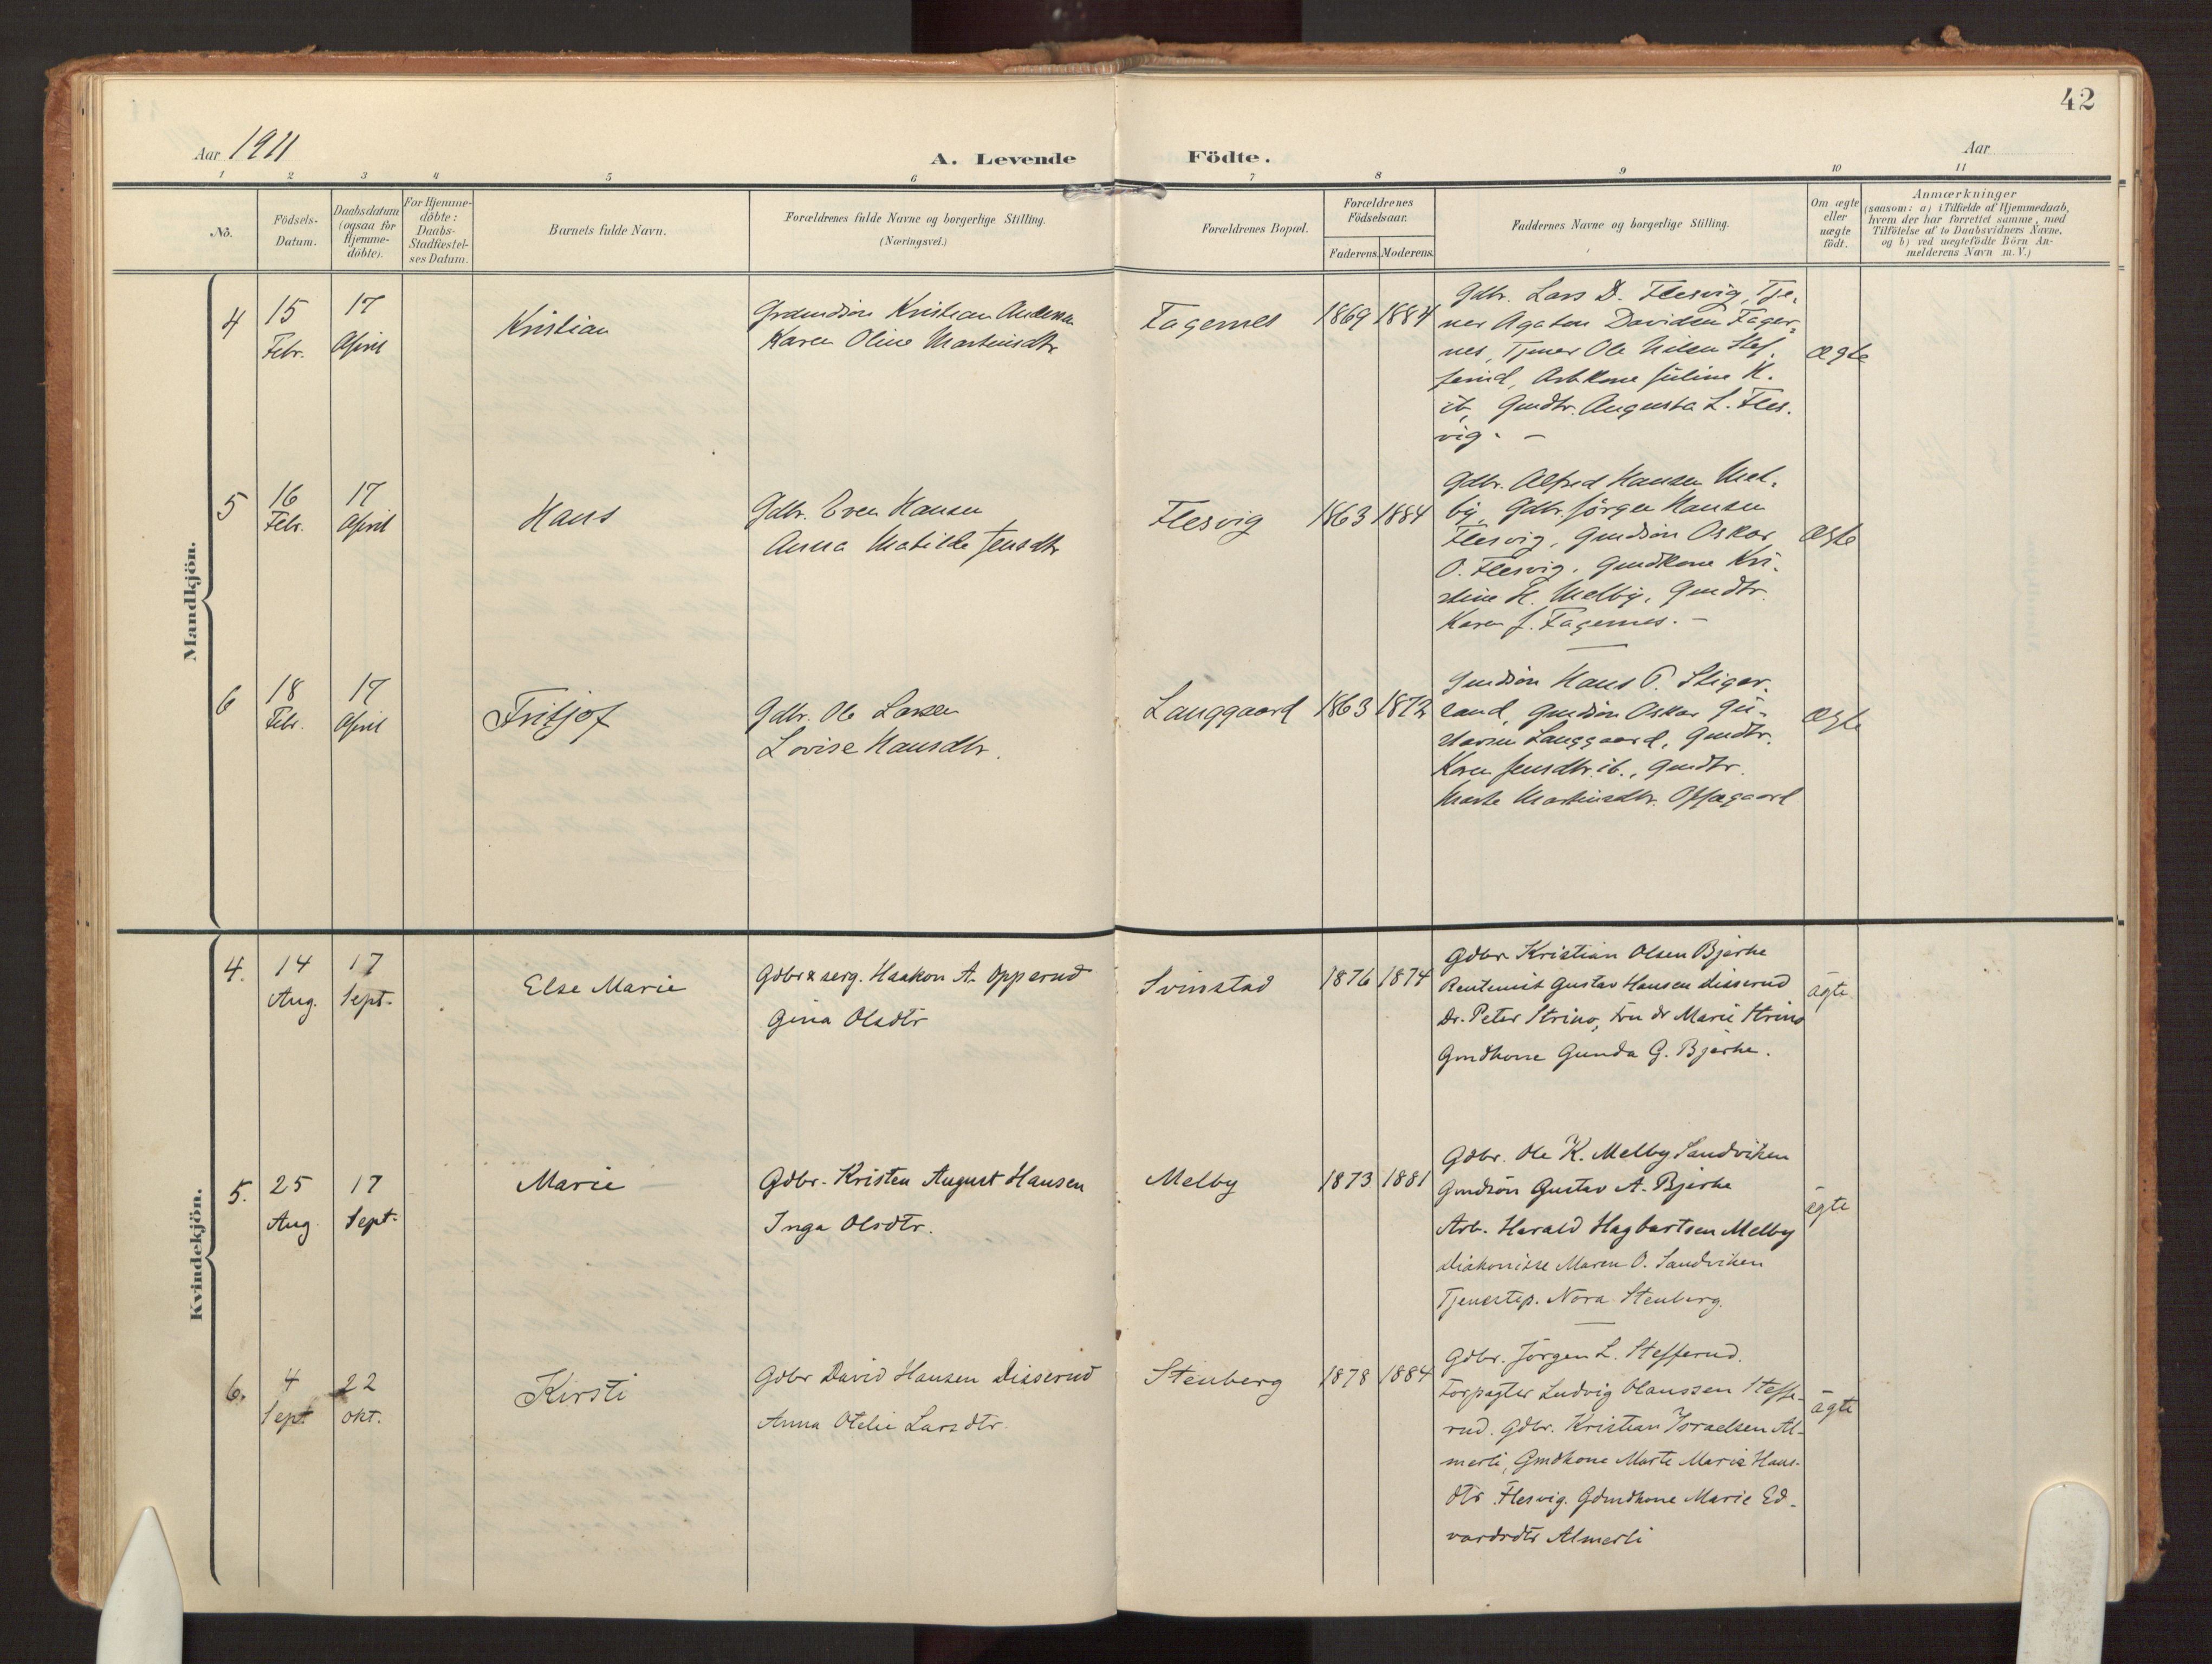 42
Aar 1911
A. Levende Födte.
Aar
1 2 3 4 5 6 7 8 9 10 11
No.
Födsels-
Datum.
Daabsdatum
(ogsaa for
Hjemme-
döbte).
For Hjemme-
döbte:
Daabs-
Stadfæstel-
ses Datum.
Barnets fulde Navn.
Forældrenes fulde Navne og borgerlige Stilling.
(Næringsvei.)
Forældrenes Bopæl.
Forældrenes
Födselsaar.
Faderens. Moderens.
Faddernes Navne og borgerlige Stilling.
Om ægte
eller
uægte
födt.
Anmærkninger
(saasom: a) i Tilfælde af Hjemmedaab,
hvem der har forrettet samme, med
Tilföielse af to Daabsvidners Navne,
og b) ved uægtefödte Börn An-
melderens Navn m. V.)
Mandkjön.
4
15
Febr.
17
April
Kristian
Grdmdsön Kristian Andersen
Karen Oline Martinsdtr
Fagernes
1869 1884
Gdbr. Lars D. Flesvig, Tje-
ner Agaton Davidsen Fager-
nes, Tjener Ole Nilsen Stef-
ferud, Arbkone Juline K.
ib, Gmdtr. Augusta L. Fles-
vig. -
ægte
5
16
Febr.
17
April
Hans
Gdbr. Even Hansen
Anna Matilde Jensdtr
Flesvig
1863 1884
Gdbr. Alfred Hansen Mel-
by, Gdbr. Jörgen Hansen
Flesvig, Gmdsön Oskar
O. Flesvig, Gmdkone Kri-
stine H. Melby, Gmdtr.
Karen J. Fagernes. -
ægte
6
18
Febr.
17
April
Fritjof
Gdbr. Ole Larsen
Lovise Hansdtr.
Langgaard
1863 1872
Gmdsön Hans P. Stiger-
sand, Gmdsön Oskar Gu-
stavsen Langgaard, Gmdtr.
Karen Jensdtr. ib., Gmdtr.
Marte Martinsdtr. Oppegaard
ægte
Kvindekjön.
4.
14
Aug.
17
Sept.
Else Marie
Gdbr & serg. Haakon A. Opperud
Gina Olsdtr
Svinstad
1876 1874
Gdbr Kristian Olsen Bjerke
Rentenist Gustav Hansen Disserud
Dr. Peter Strino, Fru dr Marie Strino
Gmdkone Gunda G. Bjerke.
ägte
5.
25
Aug
17
Sept.
Marie
Gdbr. Kristen August Hansen
Inga Olsdtr.
Melby
1873 1881
Gdbr. Ole K. Melby Sandviken
Gmdsön Gustav A. Bjerke
Arb. Harald Hagbartsen Melby
Diakonisse Maren O. Sandviken
Tjenestep. Nora Stenberg.
ägte
6.
4
Sept
22
okt.
Kirsti
Gdbr David Hansen Disserud
Anna Otelie Larsdtr.
Stenberg
1878 1884
Gdbr. Jörgen L. Stefferud.
Forpagter Ludvig Olaussen Steffe-
rud. Gdbr. Kristian Israelsen Al-
merli, Gmdkone Marte Marie Hans-
dtr Flesvig. Gdmdkone Marie Ed-
vardsdtr Almerli
ägte